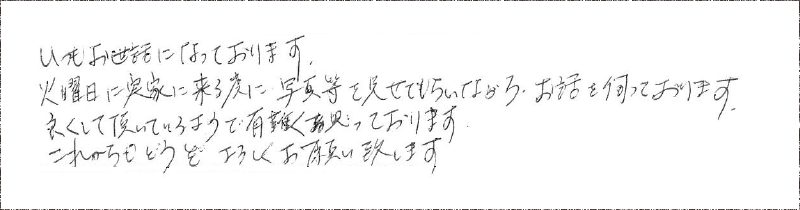 いつもお世話になっております。
火曜日に実家に来る度に写真等を見せてもらいながら、お話を伺っております。
良くして頂いているようで有難く思っております。
これからもどうぞよろしくお願い致します